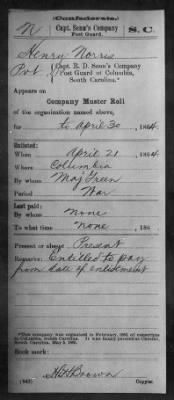 (Confederate.)
N Capt. Senn's Company Post Guard. S. C.
Henry Norris
Pvt., Capt. R. D. Senn's Company Post Guard of Columbia, South Carolina.*
Appears on
Company Muster Roll
of the organization named above,
for to April 30, 1864.
Enlisted:
When April 21, 1864.
Where Columbia
By whom Maj Green
Period War
Last paid:
By whom None
To what time None, 186 .
Present or absent Present
Remarks: Entitled to pay
from date of enlistment
*This company was organized in February, 1862 of conscripts
of Columbia, South Carolina. It was finally paroled
South Carolina, May 2, 1865.
Book mark:
(642) Copyist.